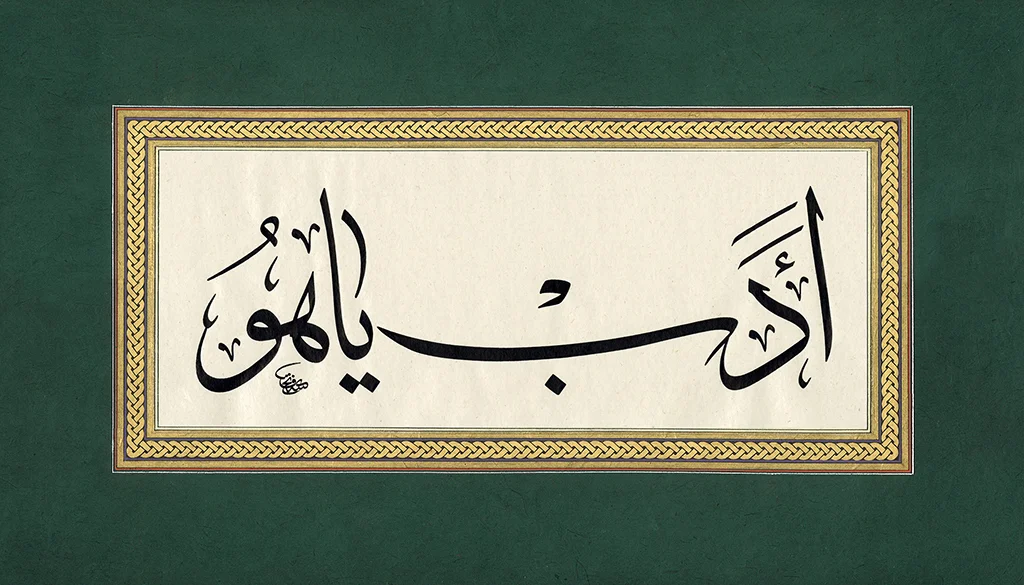 أَدَبْ يَا هُو